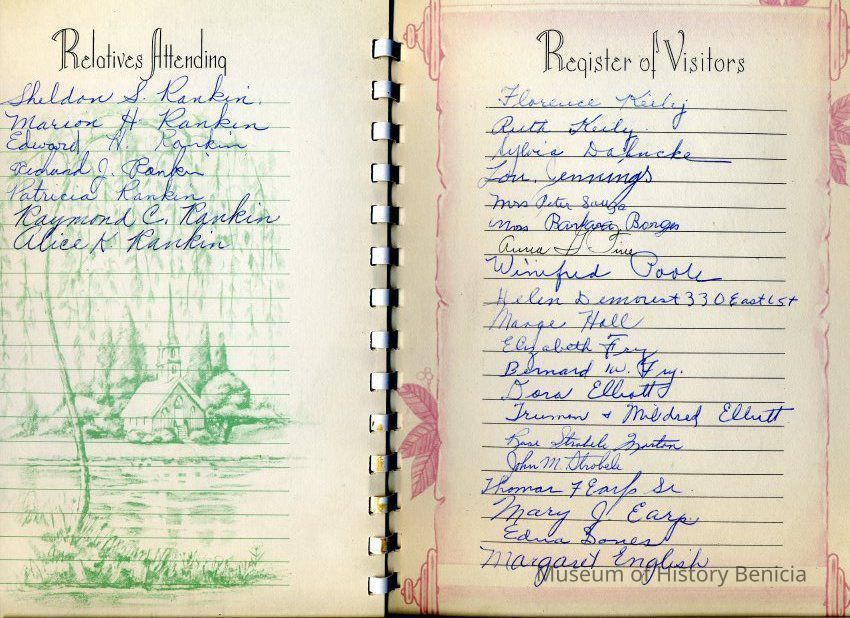 Relatives Attending
Sheldon S. Rankin.
Marion H Rankin
Edward H. Rankin
Richard J. Rankin
Patricia Rankin
Raymond C. Rankin
Alice K Rankin
Register of Visitors
Florence Keily
Ruth Keily
Sylvia
Lou Jennings
Mrs Peter Souza
Mrs Barbara Borges
Anna
Winifred Poole
Helen Demorest 330 East L St
Marge Hall
Elizabeth Fry
Bernard W. Fry.
Dora Elliott
Truman & Mildred Elliott
Rose Strobele
John M. Strobele
Thomas F Earp Sr.
Mary J. Earp
Edna
Margaret English
Museum of History Benicia